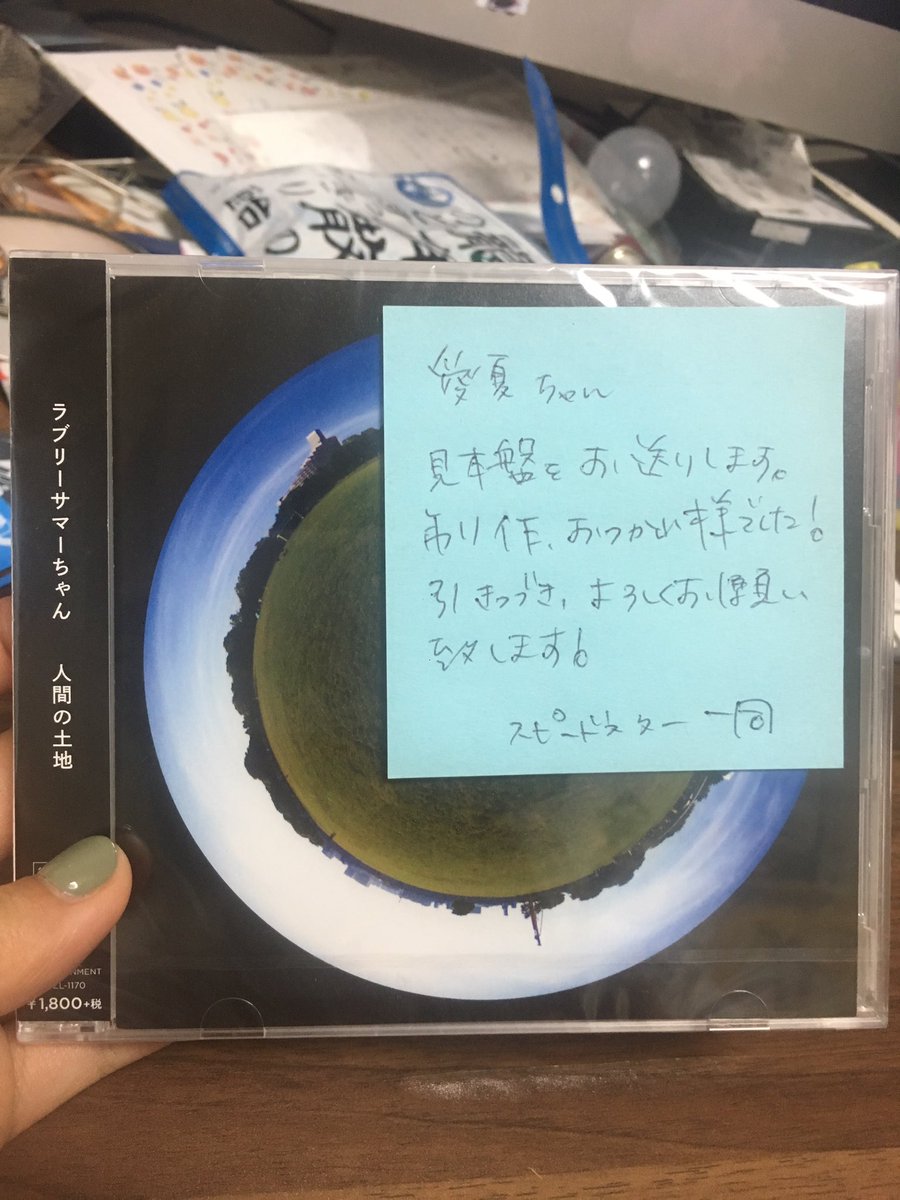 ラブリーサマーちゃん 人間の土地
NMENT
EL-1170
¥1,800+税
愛夏ちゃん
見本盤をお送りします。
制作、おつかれ様でした!
引きつづき、よろしくお願い
致します!
スピードスター一同
龍
散
の
飴